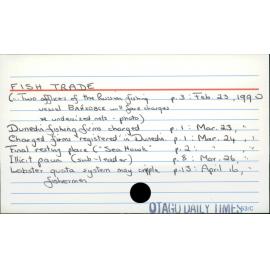 FISH TRADE
(- Two officers of the Russian fishing p.3: Feb. 23, 1990
vessel face charges
re undersized nets - photo)
Dunedin fishing firms charged p.1: Mar. 23, "
Charged firms registered in Dunedin p.1: Mar. 24, "
Final resting place ("Sea Hawk" p.2: " "
Illicit paua (sub-leader) p.8: Mar. 26, "
Lobster quota system may cripple p.13: April 16, "
fishermen
OTAGO DAILY TIMES